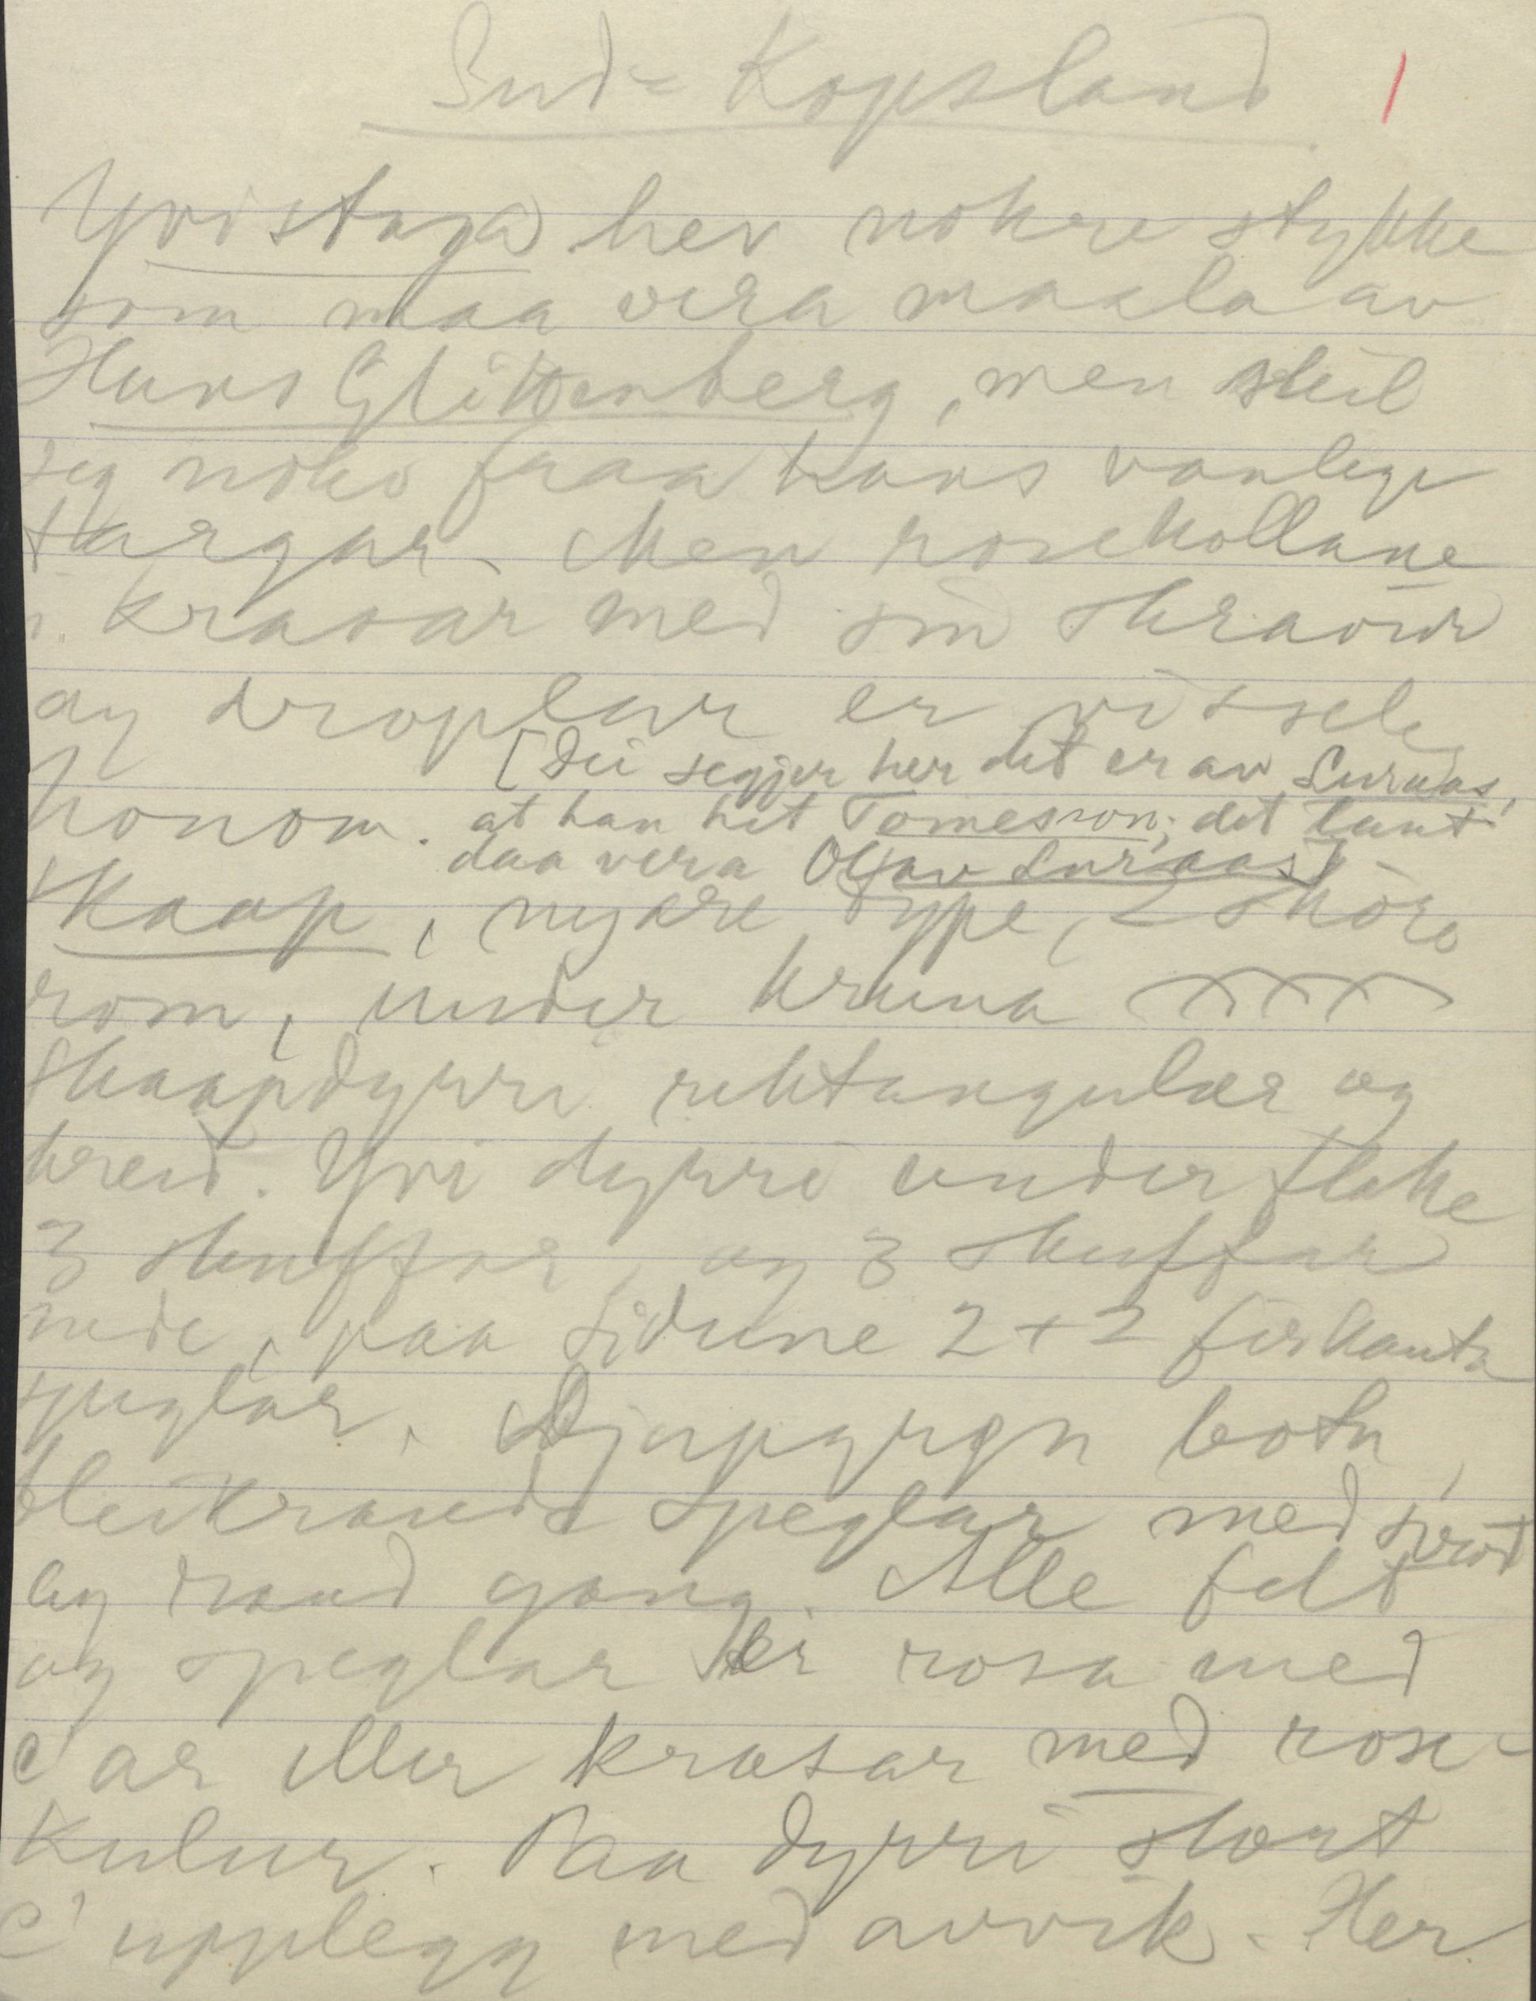 Sud-Kopsland 1
Yvistoga hev nokre stykke
som maa vera maala av
Hans Glittenberg, men skil
seg noko fraa hans vanlege
fargar. Men rosekollane
i krasar med sin skravur
og droplar er visseleg
honom. [Dei segjer her det er av Luraas,
at han het Tomesson; det laut
daa vera Olav Luraas]
Skaap, nyare type, 2 sköre
rom, under kruna
Skaapdyrri rektangulær og
breid. Yvi dyrri under flake
3 skuffor og 3 skuffar
nede, paa sidune 2+2 firkanta
speglar. Djupgrøn botn,
bleikraude speglar med svart
og raud gang. Alle felt
og speglar er rosa med
C'ar eller krasar med rose-
kulur. Paa dyrri stort
C' upplegg med avvik. Her